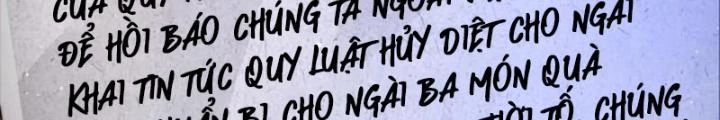 CỦA QUÝ
ĐỂ HỒI BÁO CHÚNG TA NGOÀI
KHAI TIN TỨC QUY LUẬT HỦY DIỆT CHO NGÀI
BỊ CHO NGÀI BA MÓN QUÀ
TỐ, CHÚNG